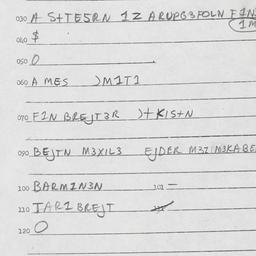 030 A S+TESRN 1Z ARUPG3FOLN F1N
(1M
040 $
050 O
060 A MES )M1T1
070 F1N BREJT3R )+K1S+N
090 BEJTN M3X1L3 EJDER M3Z1M3KABE
100 BARM1N3N 101 —
110 TAR1 BREJT
120 O